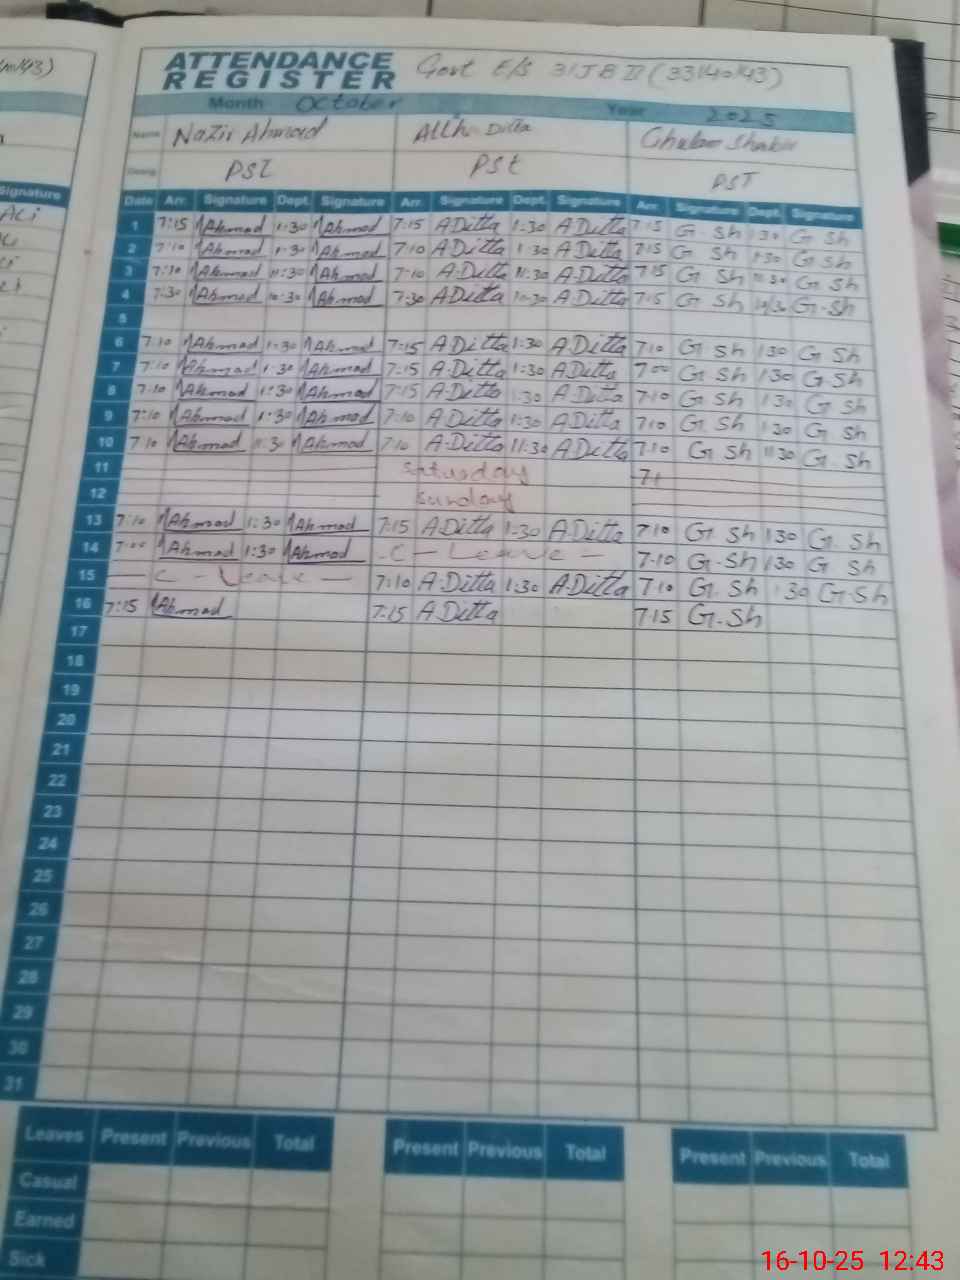 m143)
ATTENDANCE REGISTER Govt E/S 31JB II (33140143)
Month October Year 2025
Name Nazir Ahmad Allha Ditta Ghulam Shabir
Desig PST PST PST
Signature
Date Arr. Signature Dept. Signature Arr. Signature Dept. Signature Arr. Signature Dept. Signature
1 7:15 Ahmad 1:30 Ahmad 7:15 A Ditta 1:30 A Ditta 7:15 G. Sh 130 G Sh
2 7:10 Ahmad 1:30 Ahmad 7:10 A Ditta 1 30 A Ditta 7:15 G Sh 1:30 G Sh
3 7:10 Ahmad 11:30 Ahmad 7:10 A.Ditta 11:30 A Ditta 7:15 G Sh 11 30 G Sh
4 7:30 Ahmad 10:30 Ahmad 7:30 A Ditta 10:30 A Ditta 7:15 G Sh G.Sh
5
6 7:10 Ahmad 1:30 Ahmad 7:15 A Ditta 1:30 A.Ditta 7:10 G Sh 130 G Sh
7 7:10 Ahmad 1:30 Ahmad 7:15 A.Ditta 1:30 A.Ditta 7 00 G Sh 130 G.Sh
8 7:10 Ahmad 1:30 Ahmad 7:15 A.Ditta 1:30 A.Ditta 7:10 G Sh 130 G Sh
9 7:10 Ahmad 1:30 Ahmad 7:10 A.Ditta 1:30 A.Ditta 7:10 G Sh 130 G Sh
10 7 10 Ahmad 11:30 Ahmad 7:10 A.Ditta 11:30 A.Ditta 7:10 G Sh 1130 G. Sh
11 Saturday 7
12 Sunday
13 7:10 Ahmad 1:30 Ahmad 7:15 A.Ditta 1:30 A.Ditta 7:10 G. Sh 130 G. Sh
14 7:00 Ahmad 1:30 Ahmad - C - Leave - 7:10 G.Sh 130 G Sh
15 - C - Leave - 7:10 A.Ditta 1:30 A.Ditta 7:10 G. Sh 130 G.Sh
16 7:15 Ahmad 7:15 A.Ditta 7:15 G.Sh
17
18
19
20
21
22
23
24
25
26
27
28
29
30
31
Leaves Present Previous Total Present Previous Total Present Previous Total
Casual
Earned
Sick
16-10-25 12:43